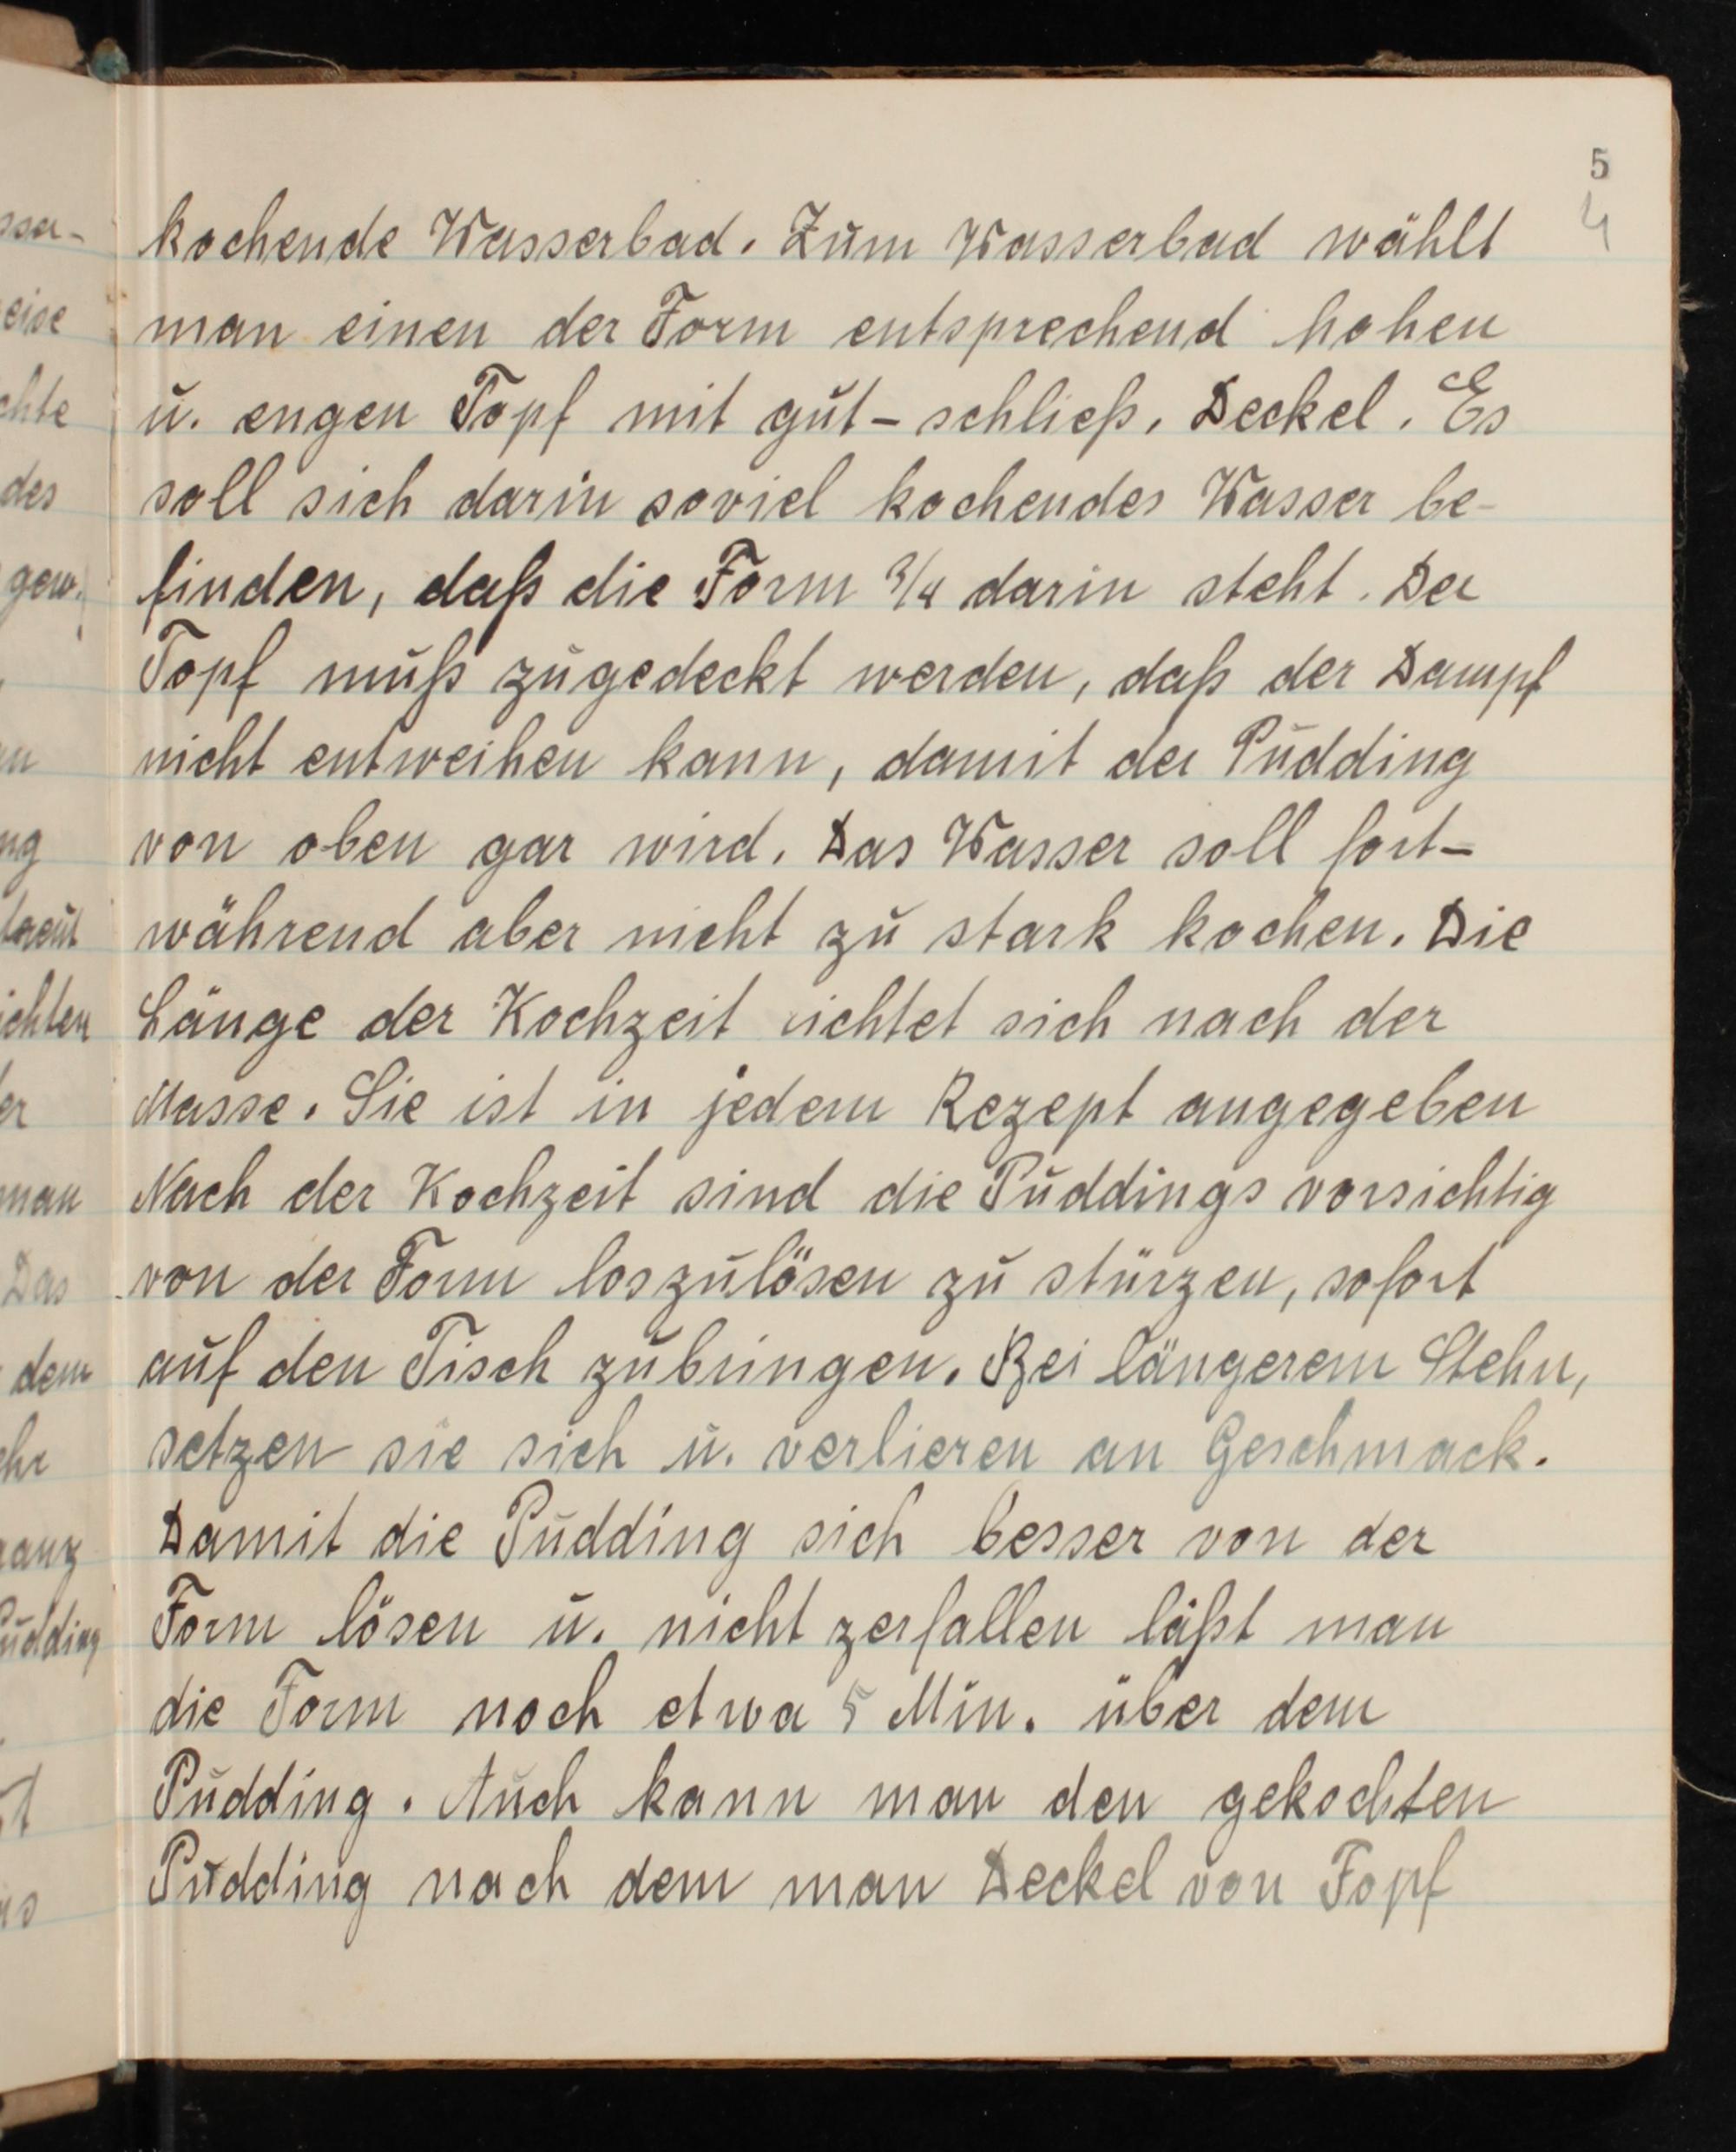 5
4
kochende Wasserbad. Zum Wasserbad wählt
man einen der Form entsprechend hohen
u. engen Topf mit gut-schließ. Deckel. Es
soll sich darin soviel kochendes Wasser be-
finden, daß die Form 3/4 darin steht. Der
Topf muß zugedeckt werden, daß der Dampf
nicht entweihen kann, damit der Pudding
von oben gar wird. Das Wasser soll fort-
während aber nicht zu stark kochen. Die
Länge der Kochzeit richtet sich nach der
Masse. Sie ist in jedem Rezept angegeben
Nach der Kochzeit sind die Puddings vorsichtig
von der Form loszulösen zu stürzen, sofort
auf den Tisch zubringen. Bei längerem Stehn,
setzen sie sich u. verlieren an Geschmack.
Damit die Pudding sich besser von der
Form lösen u. nicht zerfallen läßt man
die Form noch etwa 5 Min. über dem
Pudding. Auch kann man den gekochten
Pudding nach dem man Deckel von Topf